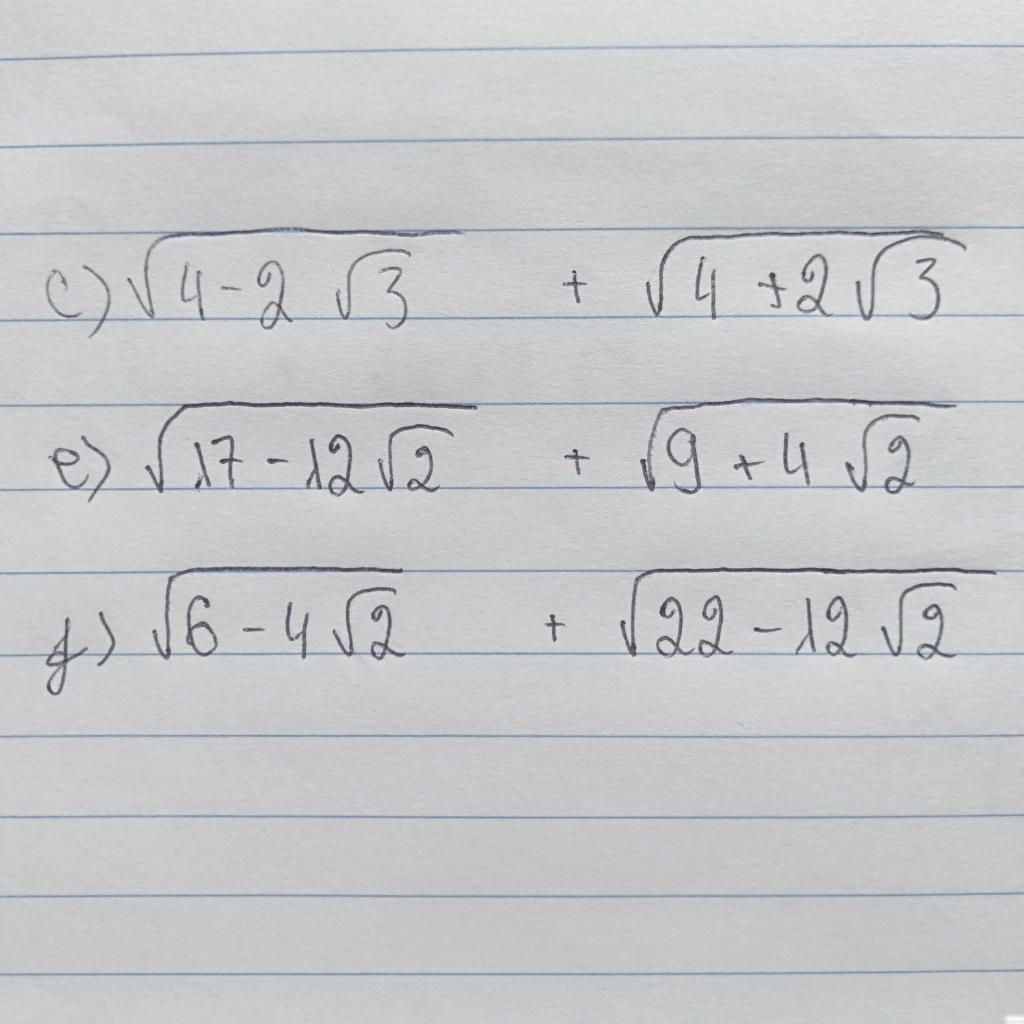 c) √(4-2√3) + √(4+2√3)
e) √(17-12√2) + √(9+4√2)
f) √(6-4√2) + √(22-12√2)